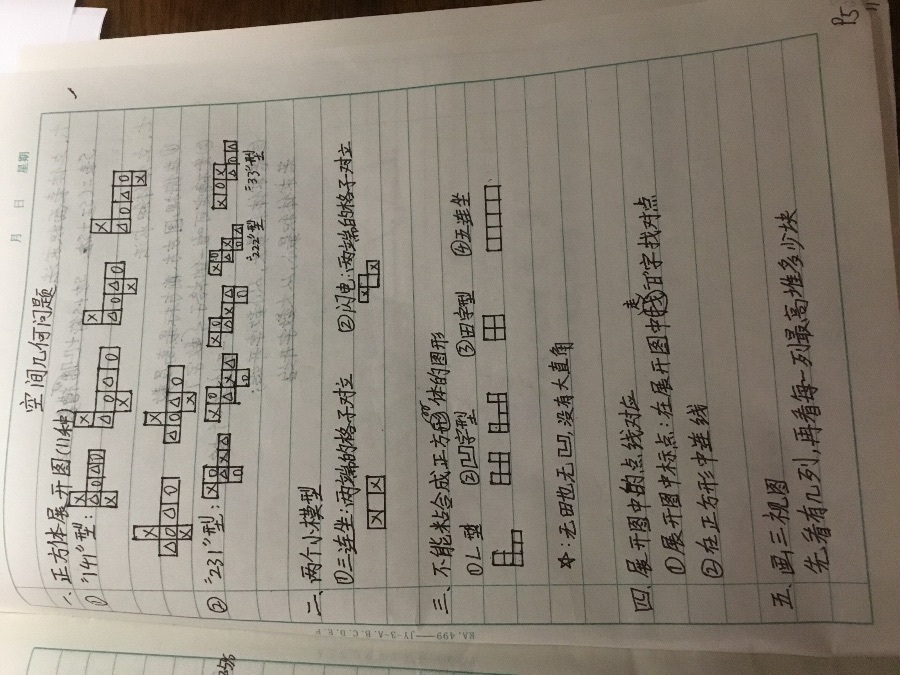 P5
月 日 星期
空间几何问题
一、正方体展开图(11种)
①"141"型:
②"231"型:
"222"型
"33"型
二、两个小模型
①三连坐:两端的格子对立 ②闪电:两端的格子对立
三、不能粘合成正方体的图形
①L型 ②凹字型 ③田字型 ④五连坐
☆:无田也无凹,没有大直角
四、展开图中的点线对应
①展开图中标点:在展开图中走"日"字找对点
②在正方形中连线
五、画三视图
先看有几列,再看每一列最高堆多少块
RA.499——JY-3-A.B.C.D.E.F